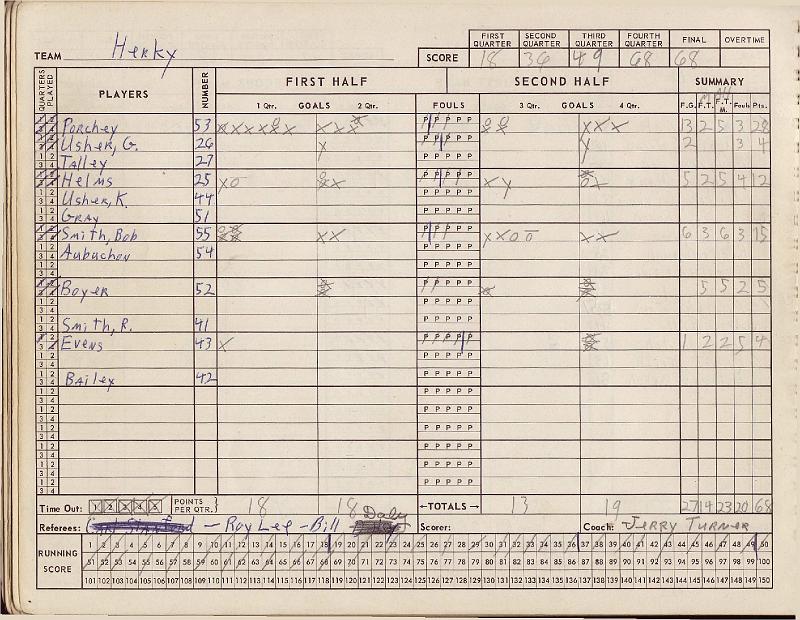 FIRST QUARTER SECOND QUARTER THIRD QUARTER FOURTH QUARTER FINAL OVERTIME
TEAM Herky SCORE 18 36 49 68 68
QUARTERS PLAYED PLAYERS NUMBER FIRST HALF SECOND HALF SUMMARY
1 Qtr. GOALS 2 Qtr. FOULS 3 Qtr. GOALS 4 Qtr. F.G. F.T. F.T. M. Fouls Pts.
Porchey 53 P P P P P 13 2 5 3 28
Usher, G. 26 P P P P P 2 3 4
Talley 27 P P P P P
Helms 25 P P P P P 5 2 5 4 12
Usher, K. 44 P P P P P
Gray 51 P P P P P
Smith, Bob 55 P P P P P 6 3 6 3 15
Aubuchon 54 P P P P P
Boyer 52 P P P P P 5 5 2 5
Smith, R. 41 P P P P P
Evens 43 P P P P P 1 2 2 5 4
Bailey 42 P P P P P
Time Out: 1 2 3 4 5 POINTS PER QTR. 18 18 TOTALS 13 19 27 14 23 20 68
Referees: - Roy Lee - Bill Daly Scorer: Coach: Jerry Turner
RUNNING SCORE
1 2 3 4 5 6 7 8 9 10 11 12 13 14 15 16 17 18 19 20 21 22 23 24 25 26 27 28 29 30 31 32 33 34 35 36 37 38 39 40 41 42 43 44 45 46 47 48 49 50
51 52 53 54 55 56 57 58 59 60 61 62 63 64 65 66 67 68 69 70 71 72 73 74 75 76 77 78 79 80 81 82 83 84 85 86 87 88 89 90 91 92 93 94 95 96 97 98 99 100
101 102 103 104 105 106 107 108 109 110 111 112 113 114 115 116 117 118 119 120 121 122 123 124 125 126 127 128 129 130 131 132 133 134 135 136 137 138 139 140 141 142 143 144 145 146 147 148 149 150